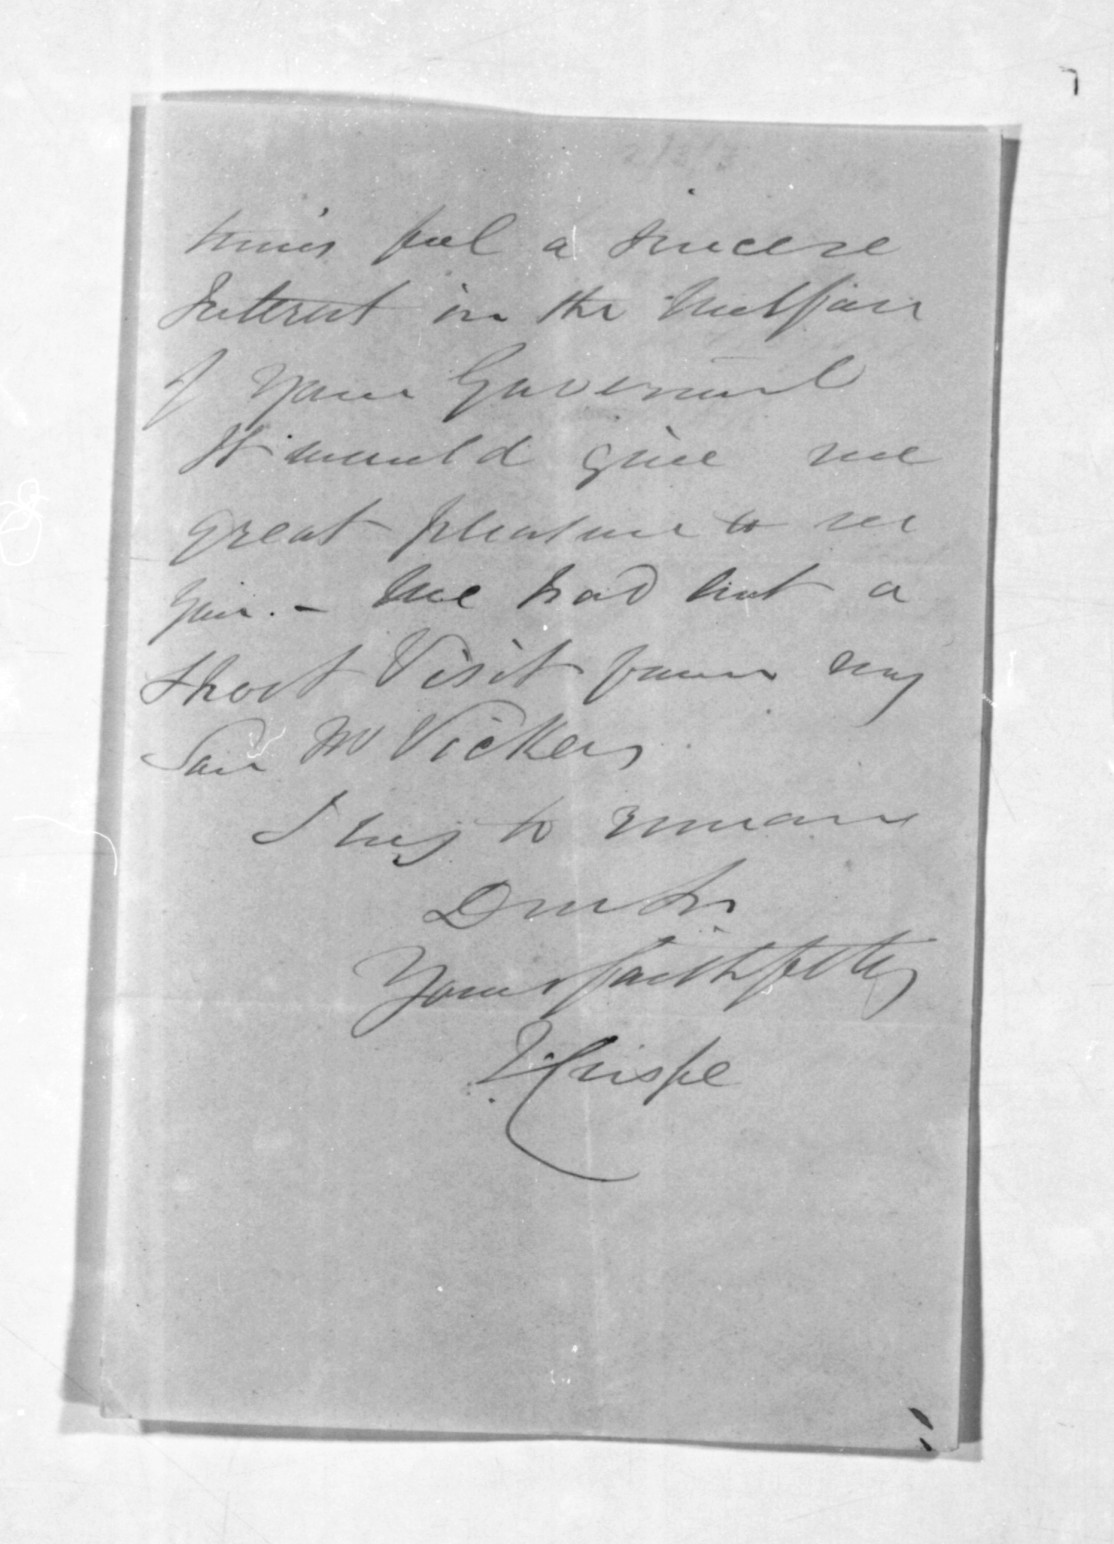 feel a sincere
Interest in the Wellfare
of your Goverment
It would give me
great pleasure to see
you. - We had but a
short Visit from my
Son Mr Vickers
I beg to remain
Dear Sir
Yours faithfully
Crispe